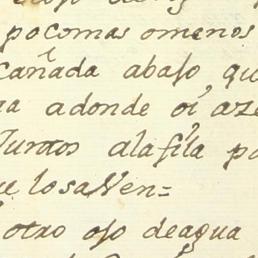 pocomas omenos
cañada abaso qu
a adonde oi, aze
Juntos alafila po
ue losaven=
otro oJo deagua